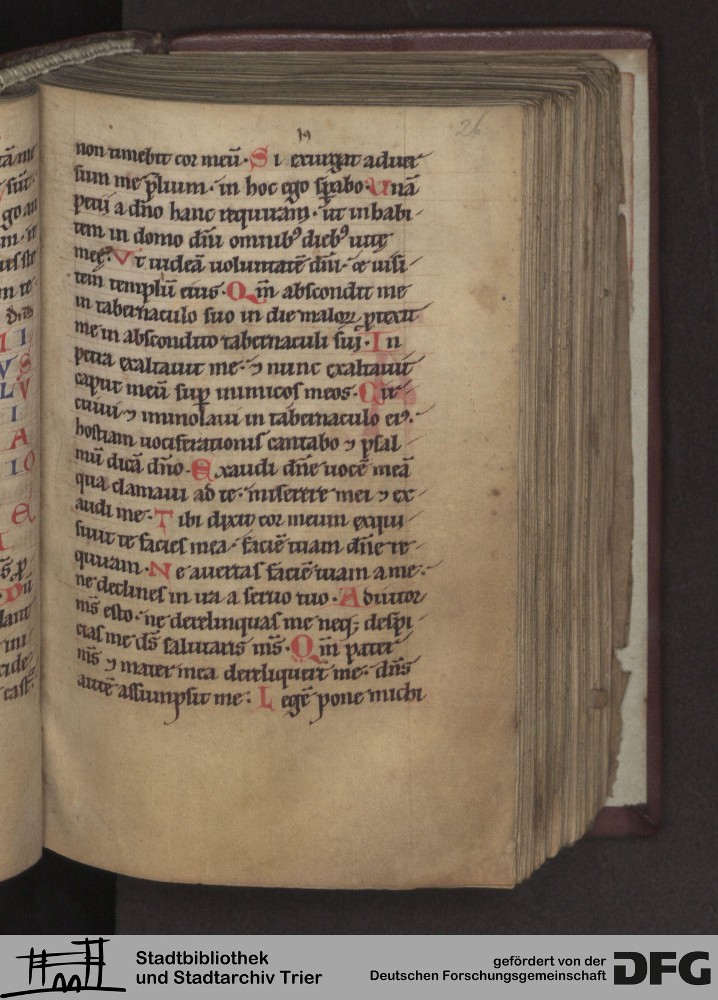 26
non timebit cor meū. Si exurgat aduer
sum me p̄lium. in hoc ego sp̄abo. Unā
petii a dn̄o hanc requiram. ut inhabi
tem in domo dn̄i omnibꝰ diebꝰ uitę
meę. Vt uideā uoluntatē dn̄i. & uisi
tem templū eius. Qm̄ abscondit me
in tabernaculo suo in die maloꝝ ꝓtexit
me in abscondito tabernaculi sui. In
petra exaltauit me. ⁊ nunc exaltauit
caput meū sup̄ inimicos meos. Cir
cuiui ⁊ immolaui in tabernaculo eiꝰ.
hostiam uociferationis cantabo ⁊ psal
mū dicā dn̄o. Exaudi dn̄e uocē meā
qua clamaui ad te. miserere mei ⁊ ex
audi me. Tibi dixit cor meum exqui
siuit te facies mea. faciē tuam dn̄e re
quiram. Ne auertas faciē tuam a me.
ne declines in ira a seruo tuo. Adiutor
ms̄ esto. ne derelinquas me neqꝫ despi
cias me ds̄ salutaris ms̄. Qm̄ pater
ms̄ ⁊ mater mea dereliquert̄ me. dn̄s
autē assumpsit me. Legē pone michi
Stadtbibliothek
und Stadtarchiv Trier
gefördert von der
Deutschen Forschungsgemeinschaft
DFG